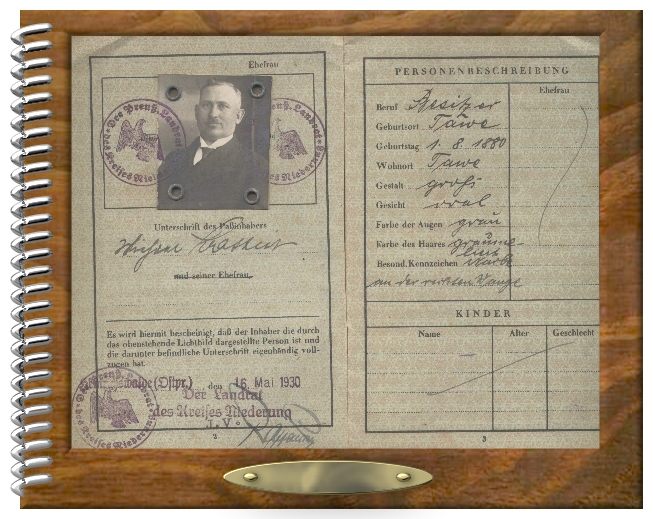 Ehefrau
Der Preuß. Landrat
des Kreises Niederung
Unterschrift des Paßinhabers
und seiner Ehefrau
Es wird hiermit bescheinigt, daß der Inhaber die durch
das obenstehende Lichtbild dargestellte Person ist und
die darunter befindliche Unterschrift eigenhändig voll-
zogen hat.
(Ostpr.) den 16. Mai 1930
Der Landrat
des Kreises Niederung
I. V.
2
PERSONENBESCHREIBUNG
Ehefrau
Beruf Besitzer
Geburtsort Tawe
Geburtstag 1. 8. 1880
Wohnort Tawe
Gestalt groß
Gesicht oval
Farbe der Augen grau
Farbe des Haares graume-
liert
Besond. Kennzeichen Narbe
an der rechten Wange
KINDER
Name Alter Geschlecht
3